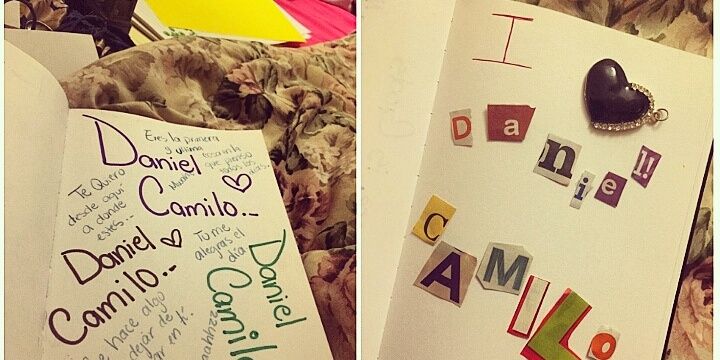 Daniel
Camilo.-
Eres la primera
y última
cosa en la
que pienso
todos los
días..
Te Quiero
desde aquí
a donde
estés...
Daniel
Camilo.-
Tu me
alegras el
día
Daniel
Camilo
hace algo
dejar de
en ti.
I
Daniel!
CAMILo